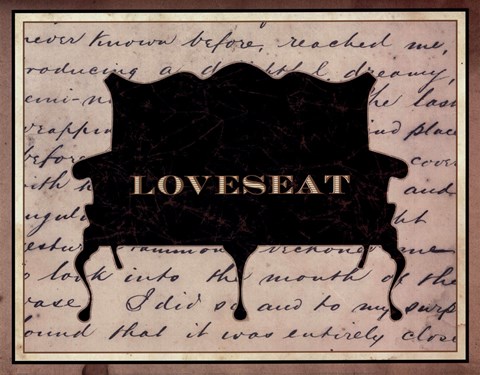 never known before, reached me,
roducing a d dreamy,
emi-n the last
wrappin ind place
before cover
ith and
ngul ht
estur common beckoned me
o look into the mouth of the
vase. I did so and to my surp
ound that it was entirely close
LOVESEAT